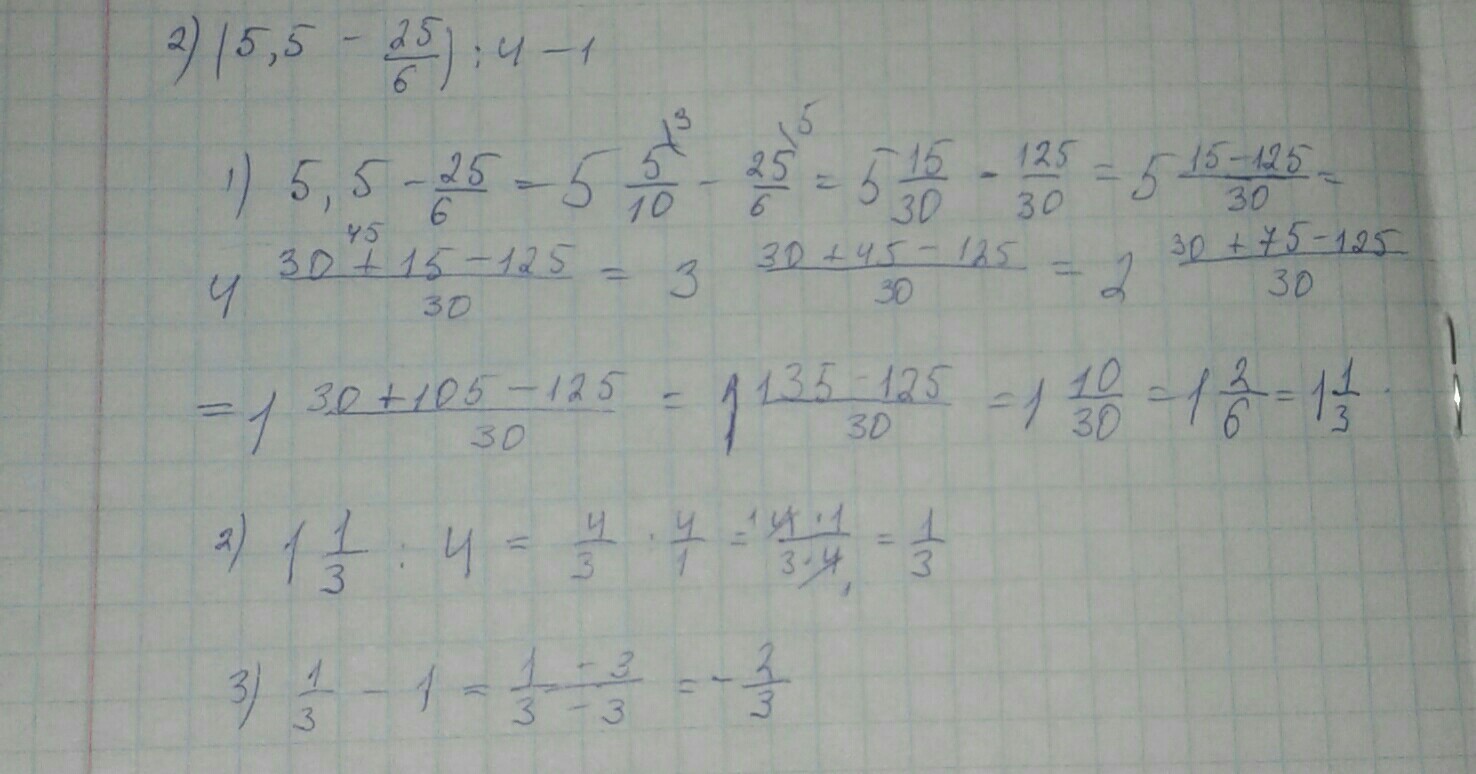 2) (5,5 - 25/6) : 4 - 1
1) 5,5 - 25/6 = 5 5/10 \3 - 25/6 \5 = 5 15/30 - 125/30 = 5 (15-125)/30 =
45
4 (30+15-125)/30 = 3 (30+45-125)/30 = 2 (30+75-125)/30
= 1 (30+105-125)/30 = 1 (135-125)/30 = 1 10/30 = 1 2/6 = 1 1/3
2) 1 1/3 : 4 = 4/3 · 4/1 = (4·1)/(3·4) = 1/3
3) 1/3 - 1 = (1-3)/(3-3) = - 2/3